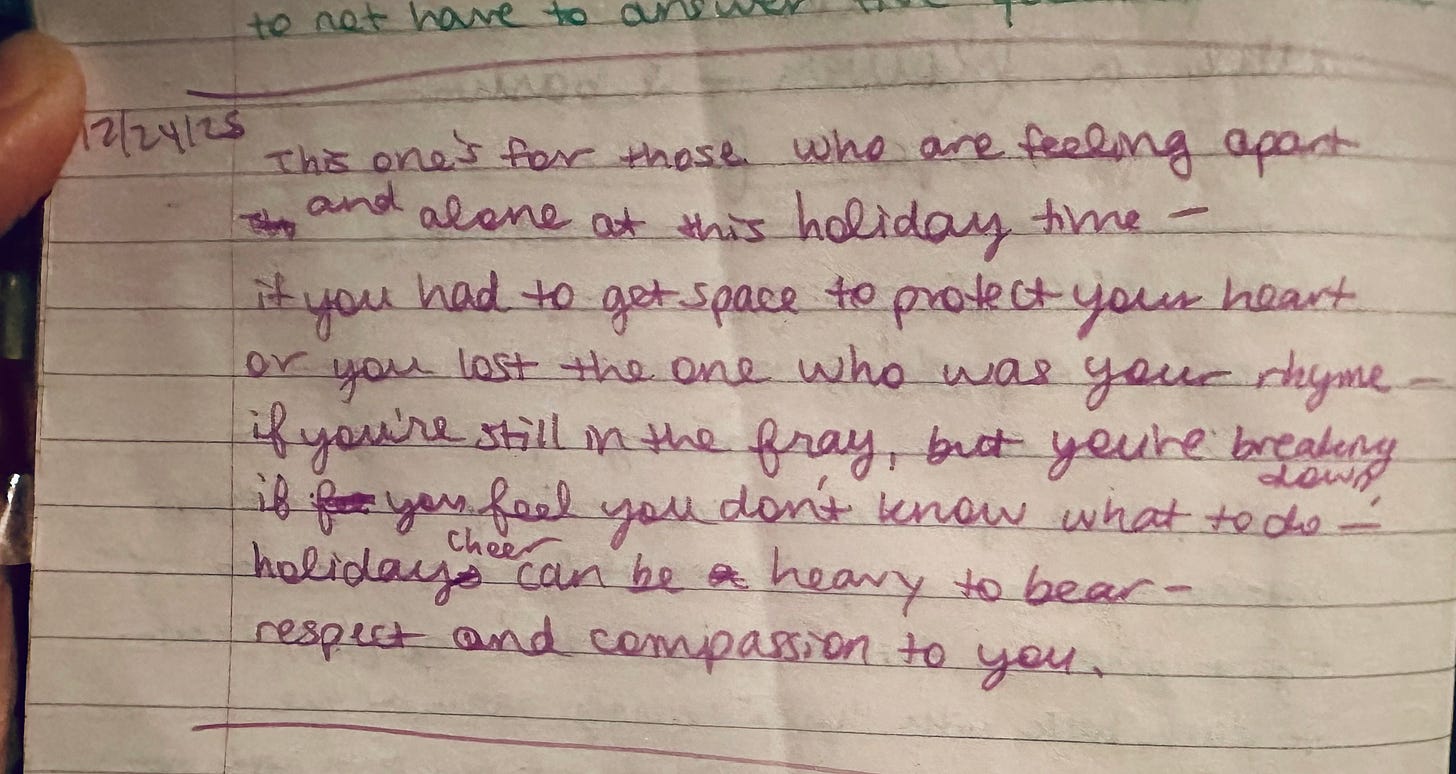 to not have to answer
12/24/25
This one's for those who are feeling apart
and alone at this holiday time –
if you had to get space to protect your heart
or you lost the one who was your rhyme –
if you're still in the fray, but you're breaking
down,
if you feel you don't know what to do –
cheer
holiday can be heavy to bear –
respect and compassion to you.